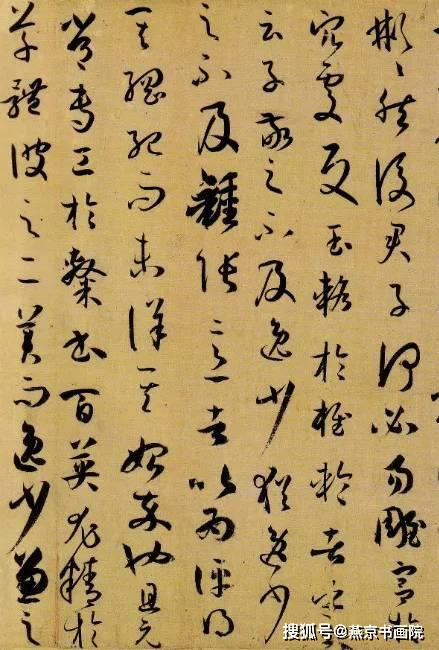 彬々然後君子何必易雕宮於
穴處反玉輅於椎輪者乎又
云子敬之不及逸少猶逸少
之不及鍾張意者以為評得
其綱紀而未詳其始卒也且元
常專工於隸書百英尤精於
草體彼之二美而逸少兼之
搜狐号@燕京书画院